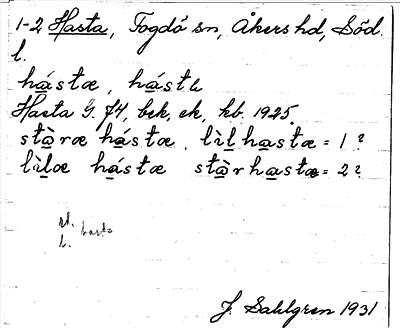 1-2 Hasta, Fogdö sn, Åkers hd, Söd.
l.
hástæ, hást
Hasta G. J4, bek, ek, kb. 1925.
stæ̀ræ hástæ, lìlhastæ = 1?
lìlæ hástæ stæ̀rhastæ = 2?
st.
l. hasta
J. Sahlgren 1931